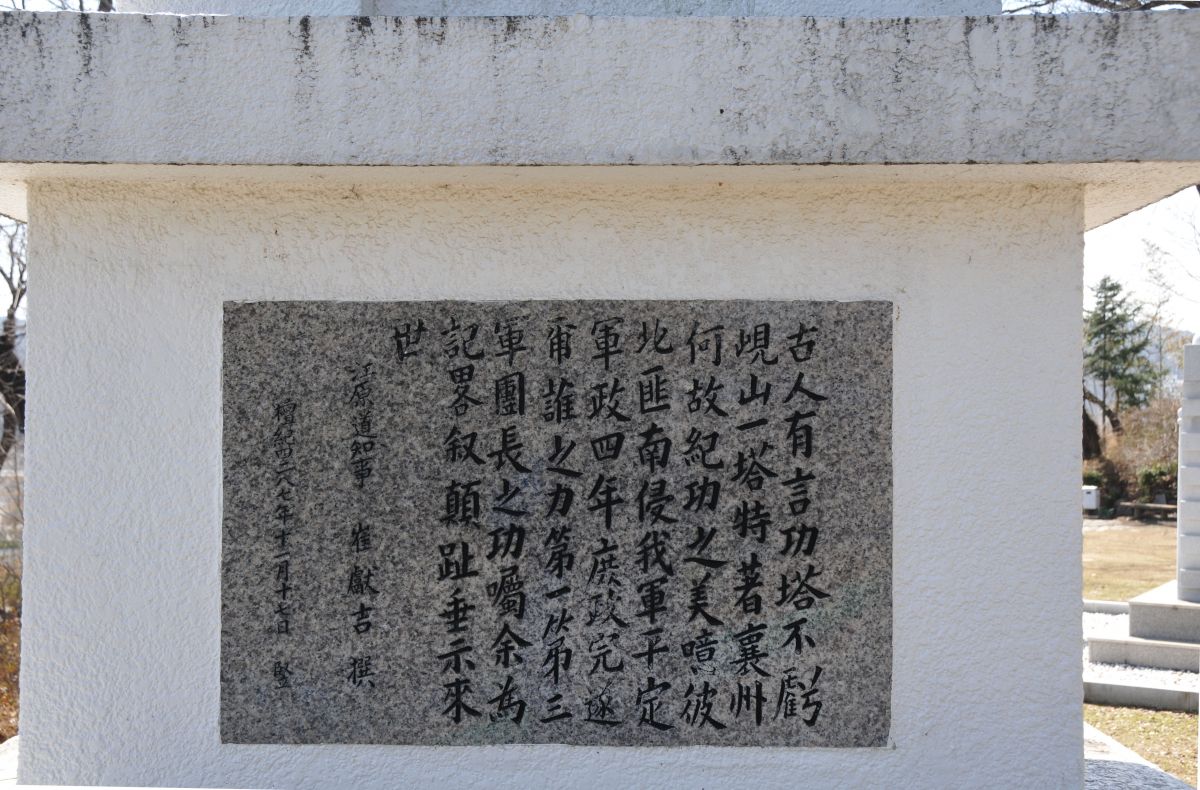 古人有言功塔不虧
峴山一塔特著襄州
何故紀功之美噫彼
北匪南侵我軍平定
軍政四年庶政完遂
甭誰之力第一以第三
軍團長之功囑余為
記畧叙顛趾垂示來
世
江原道知事 崔獻吉 撰
檀紀四二八七年十一月十七日 竪